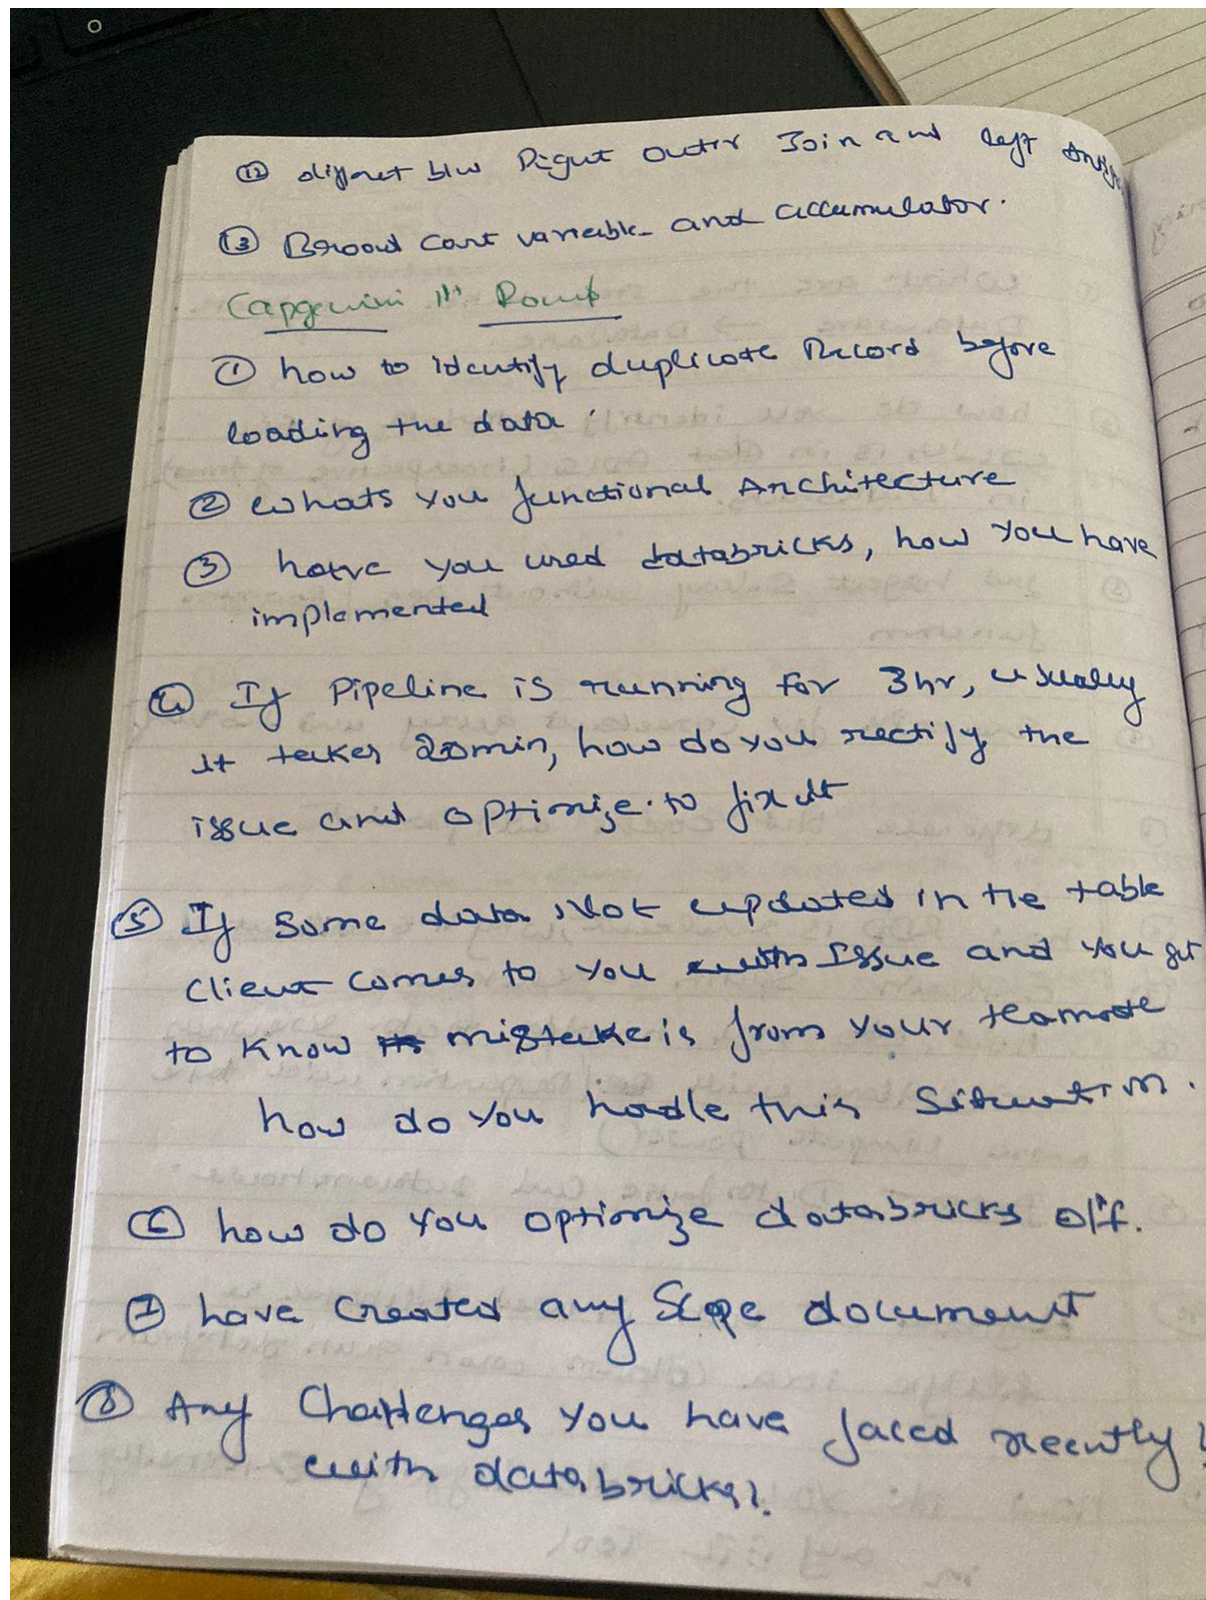 ⑫ diffrnet b/w Right outer Join and left
⑬ Broad cast variable and accumulator.
Capgemini IIIrd Round
① how to identify duplicate Record before
loading the data
② whats you functional Architecture
③ have you used databricks, how you have
implemented
④ If Pipeline is running for 3hr, usually
it takes 20min, how do you rectify the
issue and optimize to fix it
⑤ If Some data Not updated in the table
Client comes to you with Issue and you get
to know mistake is from your teamate
how do you hadle this Situation.
⑥ how do you optimize databricks
⑦ have Created any Scope document
⑧ Any Challenges you have faced recently
with databricks?